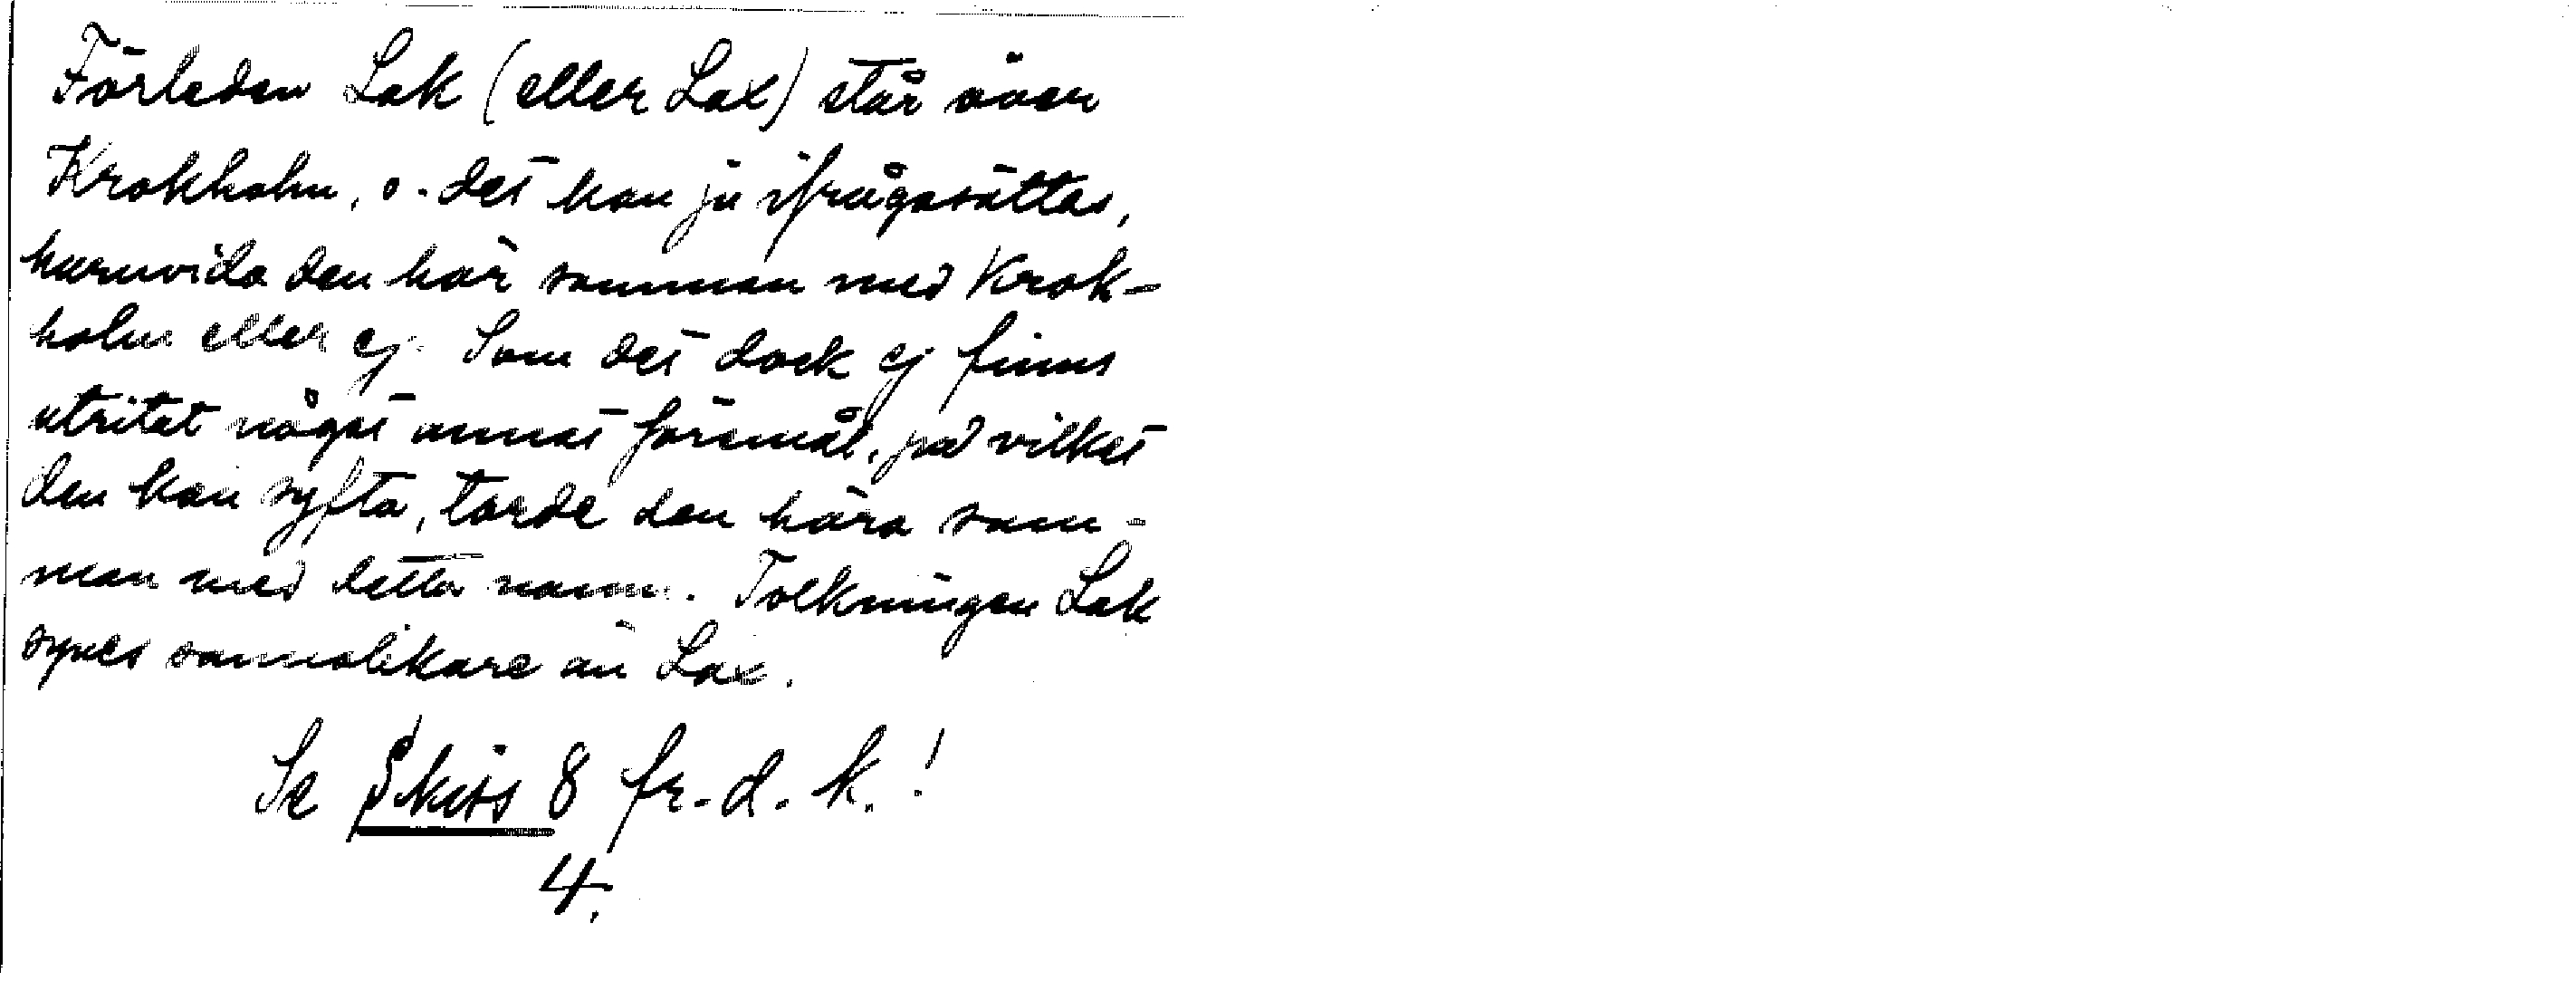 Förleden Lak (eller Lax) står över
Krokholm, o. det kan ju ifrågasättas,
huruvida den hör samman med Krok-
holm eller ej. Som det dock ej finns
utritat något annat föremål, på vilket
den kan syfta, torde den höra sam-
man med detta namn. Tolkningen Lak
synes sannolikare än Lax.
Se Skiss 8 fr. d. k.!
4.